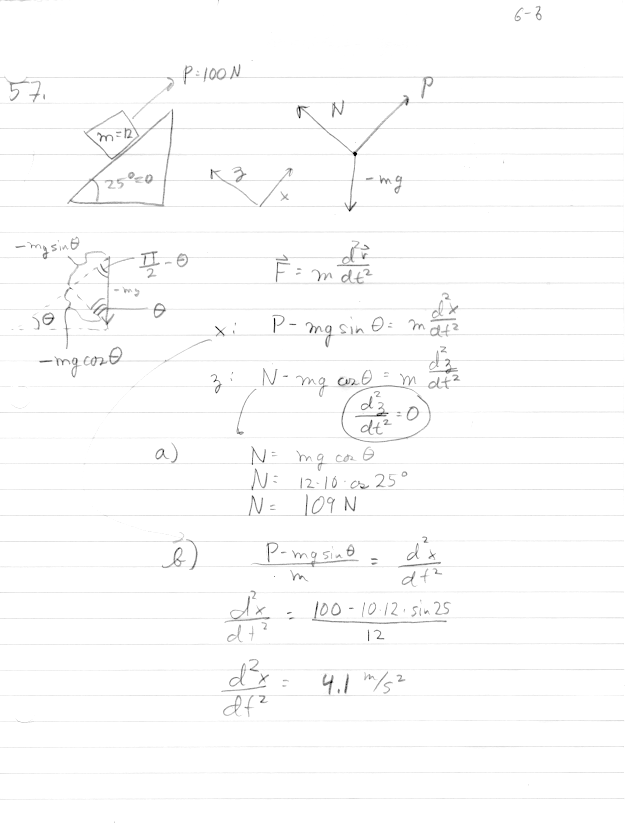 6-3
57.
P=100N
m=12
25°=θ
z
x
N
P
-mg
-mg sinθ
π/2 - θ
-mg
θ
θ
-mg cosθ
F⃗ = m d²r⃗/dt²
x: P-mg sinθ = m d²x/dt²
z: N-mg cosθ = m d²z/dt²
d²z/dt² = 0
a) N= mg cosθ
N= 12·10·cos 25°
N= 109 N
b) P-mg sinθ/m = d²x/dt²
d²x/dt² = 100-10·12·sin25/12
d²x/dt² = 4.1 m/s²